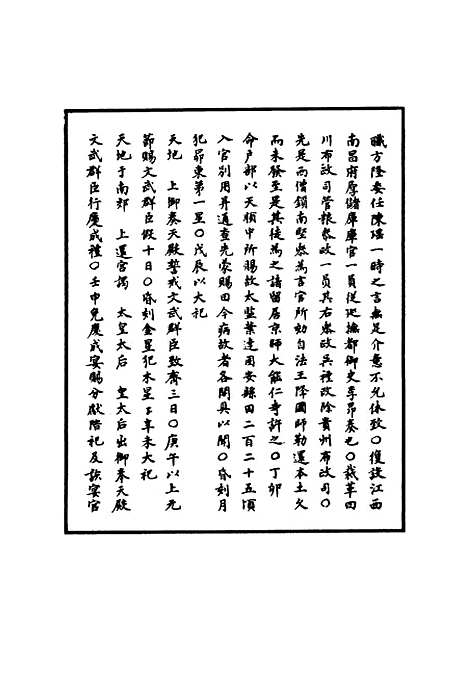 職方陞委任陳瑶一時之言無足介意不允休致○復設江西
南昌府厚儲庫庫官一員從巡撫都御史李昂奏也○裁革四
川布政司管糧參政一員其右參政吳禮改除貴州布政司○
先是西僧鎖南堅參為言官所劾自法王降國師勒還本土久
而未發至是其徒為之請留居京師大能仁寺許之○丁卯
命戶部以天順中所賜故太監葉達固安縣田二百二十五頃
入官別用并通查先蒙賜田今病故者各開具以聞○昏刻月
犯昴東第一星○戊辰以大祀
天地 上御奉天殿誓戒文武群臣致齋三日○庚午以上元
節賜文武群臣假十日○昏刻金星犯木星○辛未大祀
天地于南郊 上還宮謁 太皇太后 皇太后出御奉天殿
文武群臣行慶成禮○壬申免慶成宴賜分獻陪祀及該宴官